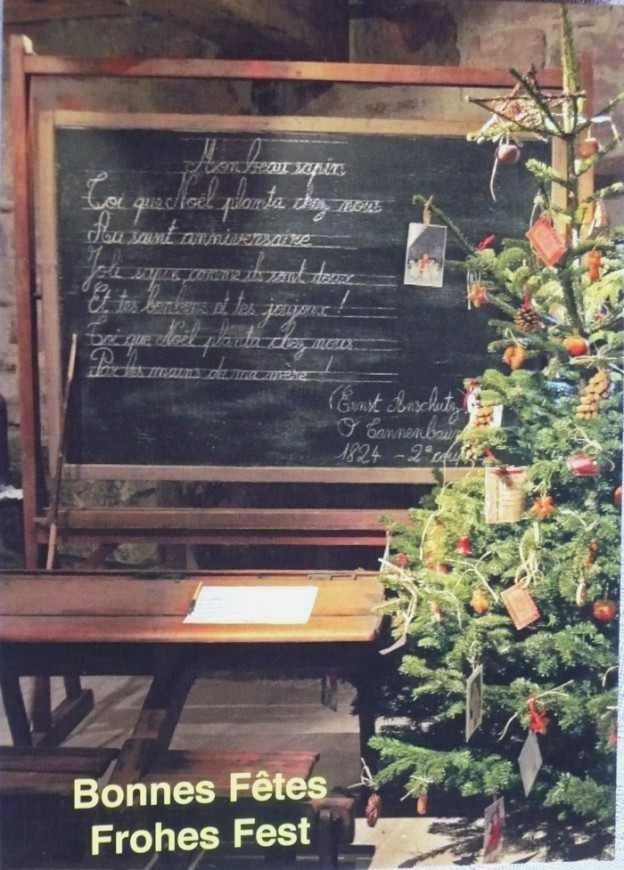 Mon beau sapin
Toi que Noël planta chez nous
Au saint anniversaire
Joli sapin, comme ils sont doux
Et tes bonbons et tes joujoux !
Toi que Noël planta chez nous
Par les mains de ma mère !
(Ernst Anschutz
O Tannenbaum
1824 - 2e
Bonnes Fêtes
Frohes Fest